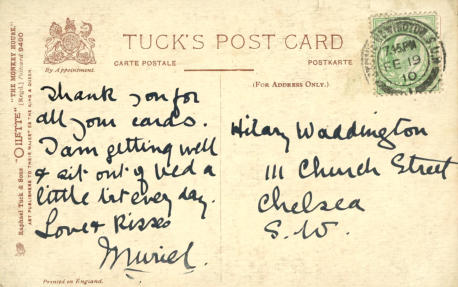 TUCK'S POST CARD
CARTE POSTALE
POSTKARTE
By Appointment.
(FOR ADDRESS ONLY.)
Raphael Tuck & Sons' "OILETTE" "THE MONKEY HOUSE."
(Regd.) Postcard 9400
ART PUBLISHERS TO THEIR MAJESTIES THE KING & QUEEN.
7.15 PM
FE 19
10
Thank you for
all your cards.
I am getting well
& sit out of bed a
little bit every day.
Love & Kisses
Muriel.
Hilary Waddington
111 Church Street
Chelsea
S.W.
Printed in England.